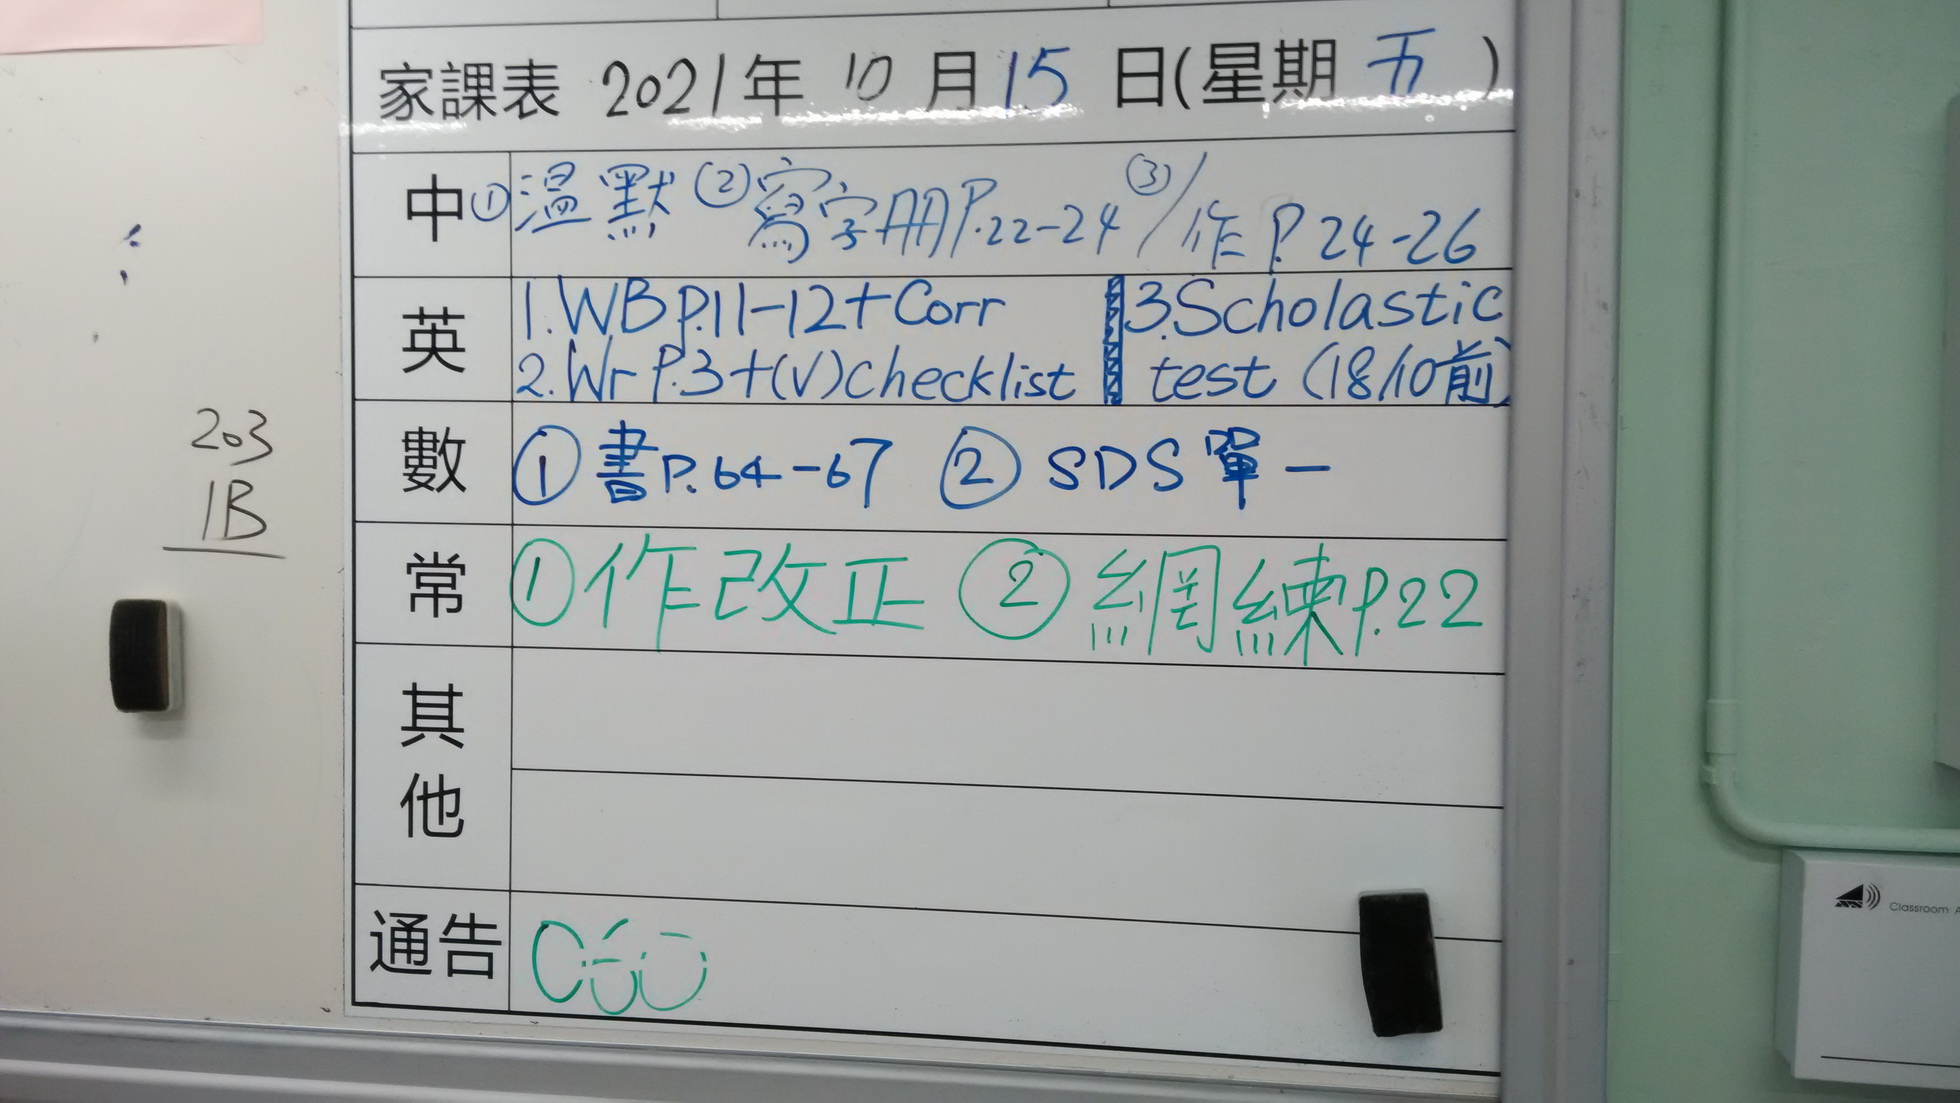 家課表 2021年 10 月 15 日(星期 五 )
中 ①溫默 ②寫字册P.22-24 ③/作 P.24-26
英 1.WB P.11-12+Corr 3.Scholastic
2.Wr P.3+(V)checklist test (18/10前)
數 ① 書P.64-67 ② SDS 單一
常 ①作改正 ② 網練P.22
其
他
通告
203
1B
Classroom